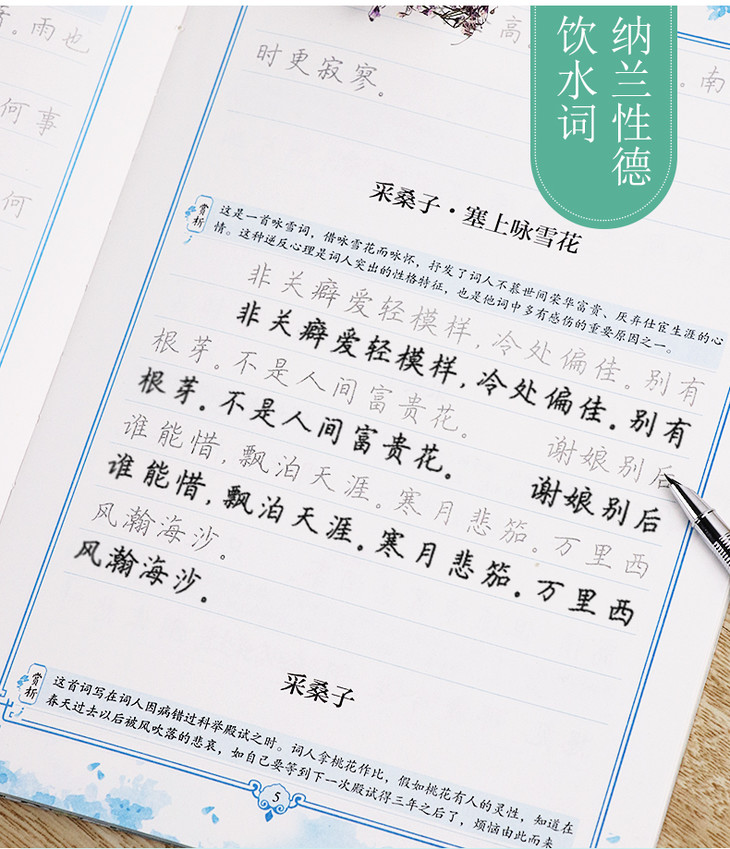 纳兰性德
饮水词
雨也
何事
何
高
南
时更寂寥。
采桑子·塞上咏雪花
赏析
这是一首咏雪词，借咏雪花而咏怀，抒发了词人不慕世间荣华富贵、厌弃仕宦生涯的心
情。这种逆反心理是词人突出的性格特征，也是他词中多有感伤的重要原因之一。
非关癖爱轻模样，冷处偏佳。别有
非关癖爱轻模样，冷处偏佳。别有
根芽。不是人间富贵花。 谢娘别后
根芽。不是人间富贵花。 谢娘别后
谁能惜，飘泊天涯。寒月悲笳。万里西
谁能惜，飘泊天涯。寒月悲笳。万里西
风瀚海沙。
风瀚海沙。
采桑子
赏析
这首词写在词人因病错过科举殿试之时。词人拿桃花作比，假如桃花有人的灵性，知道在
春天过去以后被风吹落的悲哀，如自己要等到下一次殿试得三年之后了，烦恼由此而来
5